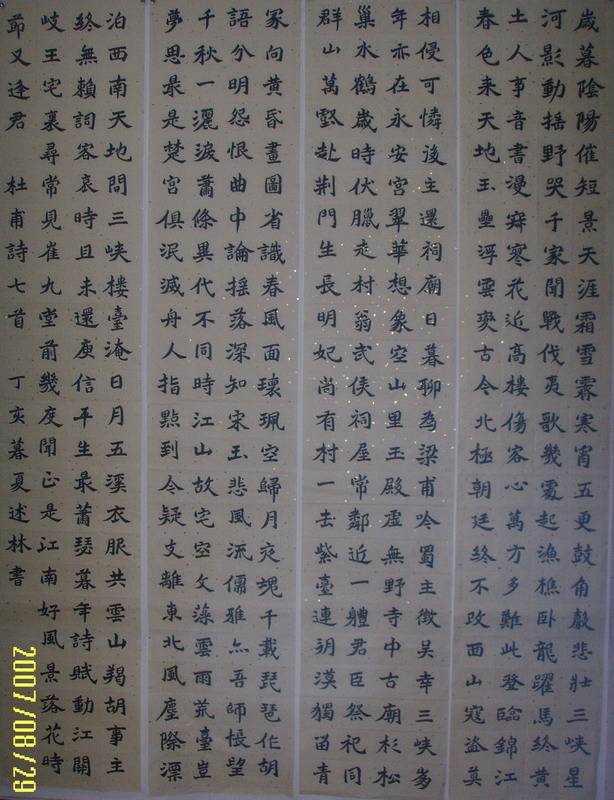 歲暮陰陽催短景天涯霜雪霽寒宵五更鼓角聲悲壯三峽星
河影動搖野哭千家聞戰伐夷歌幾處起漁樵臥龍躍馬終黃
土人事音書漫寂寥花近高樓傷客心萬方多難此登臨錦江
春色来天地玉壘浮雲變古今北極朝廷終不改西山寇盜莫
相侵可憐後主還祠廟日暮聊為梁甫吟蜀主徵吳幸三峽崩
年亦在永安宮翠華想象空山里玉殿虛無野寺中古廟杉松
巢水鶴歲時伏臘走村翁武侯祠屋常鄰近一體君臣祭祀同
群山萬壑赴荊門生長明妃尚有村一去紫臺連朔漠獨留青
冢向黃昏畫圖省識春風面環珮空歸月夜魂千載琵琶作胡
語分明怨恨曲中論搖落深知宋玉悲風流儒雅亦吾師悵望
千秋一灑淚蕭條異代不同時江山故宅空文藻雲雨荒臺豈
夢思最是楚宮俱泯滅舟人指點到今疑支離東北風塵際漂
泊西南天地間三峽樓臺淹日月五溪衣服共雲山羯胡事主
終無賴詞客哀時且未還庾信平生最蕭瑟暮年詩賦動江關
岐王宅裏尋常見崔九堂前幾度聞正是江南好風景落花時
節又逢君 杜甫詩七首 丁亥暮夏述林書
2007/08/29